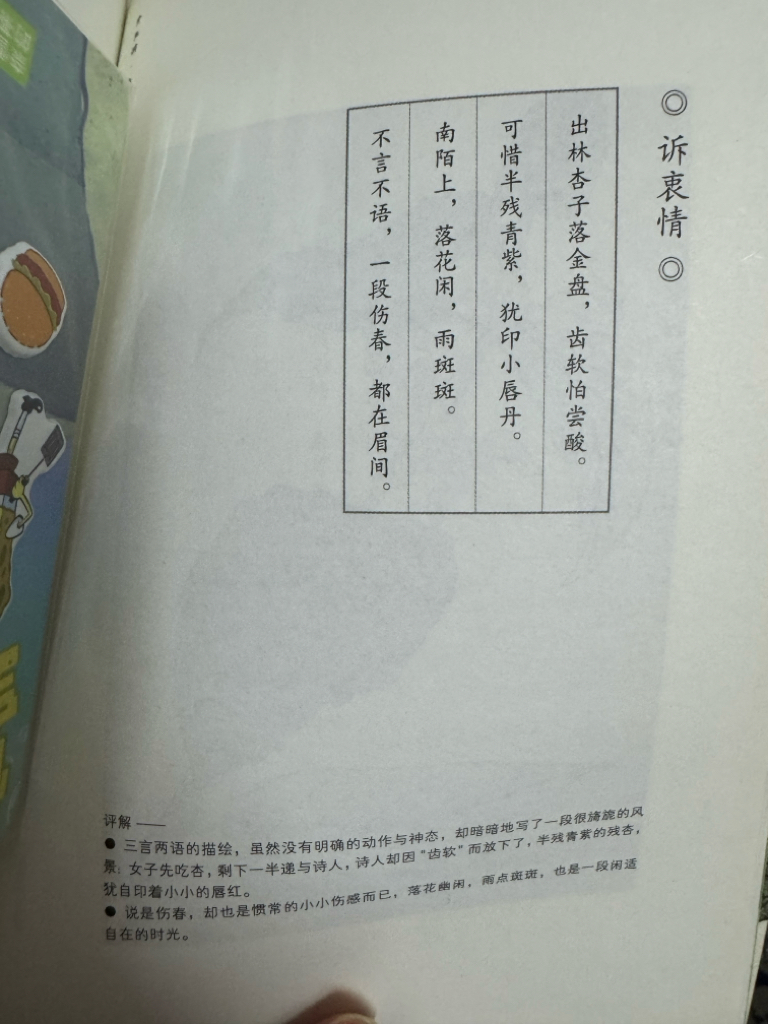 ◎ 诉衷情 ◎
出林杏子落金盘，齿软怕尝酸。
可惜半残青紫，犹印小唇丹。
南陌上，落花闲，雨斑斑。
不言不语，一段伤春，都在眉间。
评解——
● 三言两语的描绘，虽然没有明确的动作与神态，却暗暗地写了一段很旖旎的风
景：女子先吃杏，剩下一半递与诗人，诗人却因“齿软”而放下了，半残青紫的残杏，
犹自印着小小的唇红。
● 说是伤春，却也是惯常的小小伤感而已，落花幽闲，雨点斑斑，也是一段闲适
自在的时光。